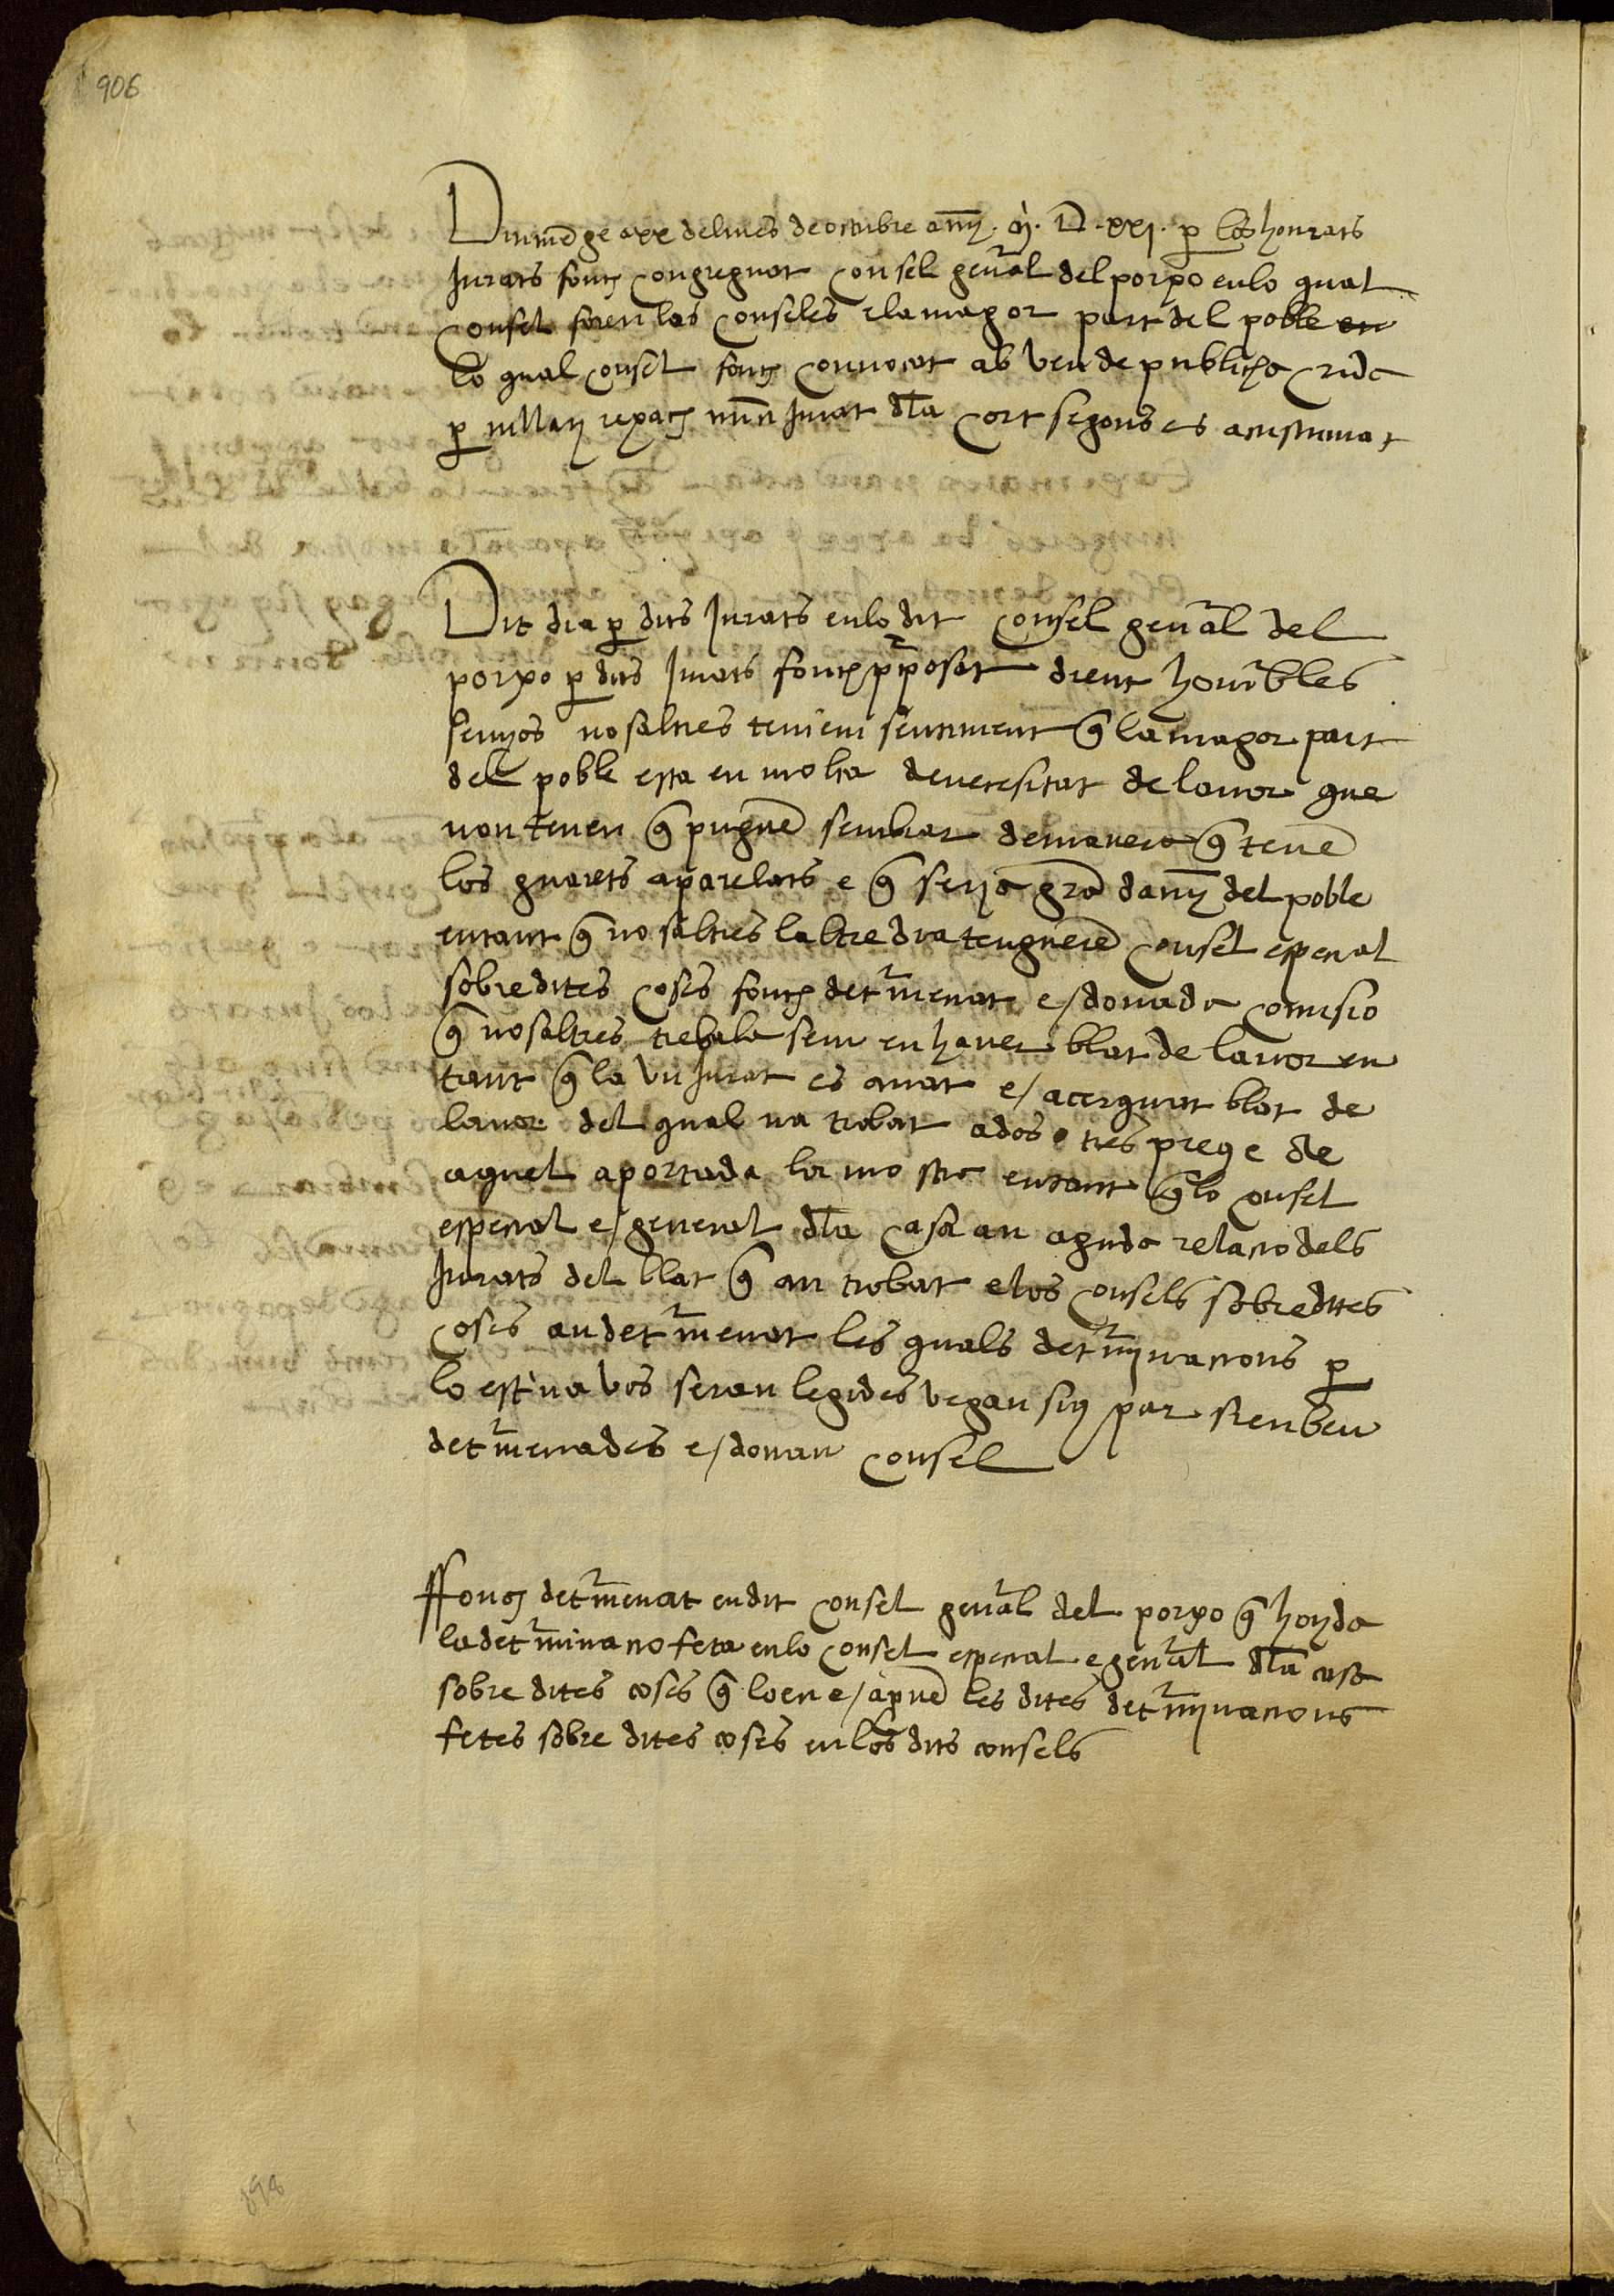 906
Diumēge a xx del mes de octubre any . M . D . xxj . per los honrats
Jurats fonch congreguat consel gen̄al del porxo en lo qual
consel foren los conseles e la magor part del poble en
lo qual consel fonch convocat ab veu de publicha crida
per guillem rexach nūci jurat dla cort segons es acustumat
Dit dia per dits Jurats en lo dit consel gen̄al del
porxo per dits Jurats fonch pposat dient honrables
senyos nosaltres teniem sentiment q̄ la magor part
del poble esta en molta de necesitat de lavor que
non tenen q̄ puguē sembrar de manera q̄ tenē
los guarets aparelats e q̄ seria grā dany del poble
entant q̄ nosaltres laltre dia tenguerē consel especial
sobre dites coses fonch detmenat e / donada comisio
q̄ nosaltres trebalasem en haver blat de lavor en
tant q̄ la vn Jurat es anat e / acerquat blat de
lavor del qual na trobat a dos o tres preus e de
aquel aportada la mostra entant q̄ lo consel
especial e / general dla casa an aguda relacio dels
Jurats del blat q̄ an trobat e los consels sobre dites
coses an detmenat les quals detminacions per
lo escriva vos seran legides vegan sius par sien ben
detmenades e / donan consel
Ffonch detmenat en dit consel gen̄al del porxo q̄ hoyda
la detminacio feta en lo consel especial e gen̄al dla casa
sobre dites coses q̄ loen e / aprovē les dites detminacions
fetes sobre dites coses en los dits consels
898